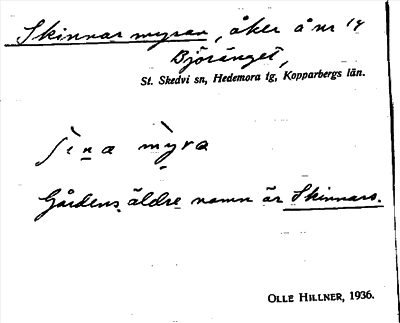 Skinnarmyran, åker å nr 14
Björänget,
St. Skedvi sn, Hedemora tg, Kopparbergs län.
myra
Gårdens äldre namn är Skinnars.
OLLE HILLNER, 1936.